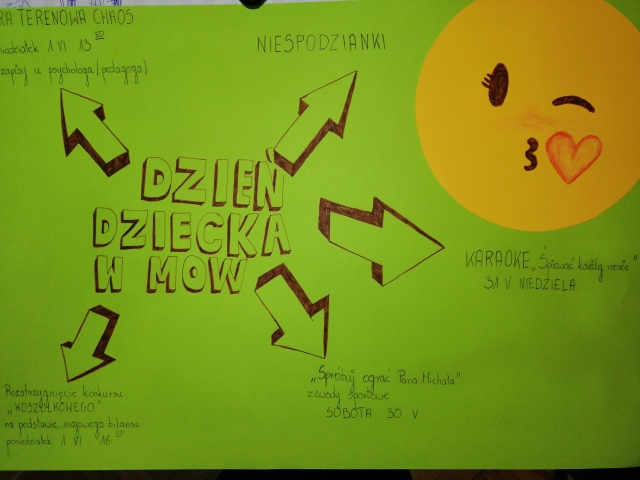 RA TERENOWA CHAOS
niedziałek 1 VI 13 30
zapisy u psychologa/pedagoga)
NIESPODZIANKI
DZIEŃ
DZIECKA
W MOW
KARAOKE „Śpiewać każdy może"
31 V NIEDZIELA
„Spróbuj ograć Pana Michała"
zawody sportowe
SOBOTA 30 V
Rozstrzygnięcie konkursu
„KOSZULKOWEGO"
na podstawie majowego bilansu
poniedziałek 1 VI 16